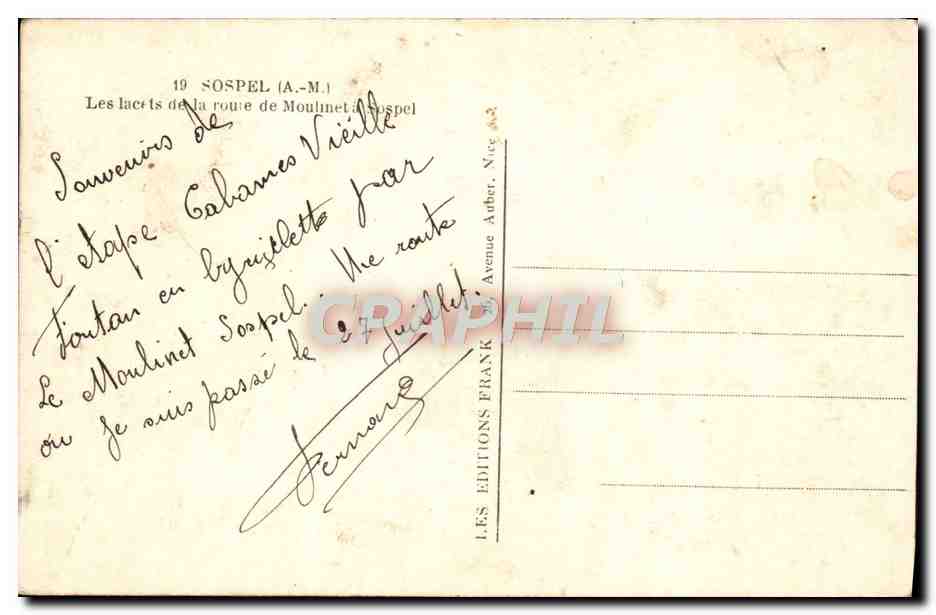 19 SOSPEL (A.-M.)
Les lacets de la route de Moulinet à Sospel
Souvenirs de
l'étape Cabannes Vieille
Fontan en byciclette par
Le Moulinet Sospel. Une route
ou je suis passé le 27 Juillet.
Fernand
LES EDITIONS FRANK Avenue Auber. Nice
CRAPHIL